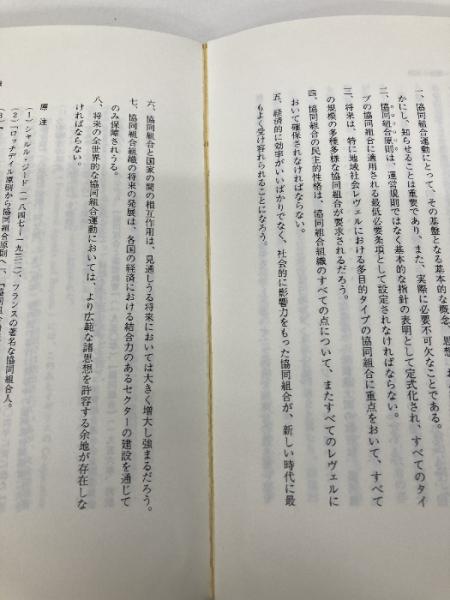 一、協同組合運動にとって、その基盤となる基本的な概念、思想、
かにし、知らせることは重要であり、また、実際に必要不可欠なことである。
二、協同組合原則は、運営規則ではなく基本的な指針の表明として定式化され、すべてのタイ
プの協同組合に適用される最低必要条項として設定されなければならない。
三、将来は、特に地域社会レヴェルにおける多目的タイプの協同組合に重点をおいて、すべて
の規模の多種多様な協同組合が要求されるだろう。
四、協同組合の民主的性格は、協同組合組織のすべての点について、またすべてのレヴェルに
おいて確保されなければならない。
五、経済的に効率がいいばかりでなく、社会的に影響力をもった協同組合が、新しい時代に最
もよく受け容れられることになろう。
六、協同組合と国家の間の相互作用は、見通しうる将来においては大きく増大し強まるだろう。
七、協同組合組織の将来の発展は、各国の経済における結合力のあるセクターの建設を通じて
のみ保障されうる。
八、将来の全世界的な協同組合運動においては、より広範な諸思想を許容する余地が存在しな
ければならない。
原 注
(1) シャルル・ジード(一八四七―一九三二)、フランスの著名な協同組合人。
(2) 「ロッチデイル原則から協同組合原則へ」、
(3)